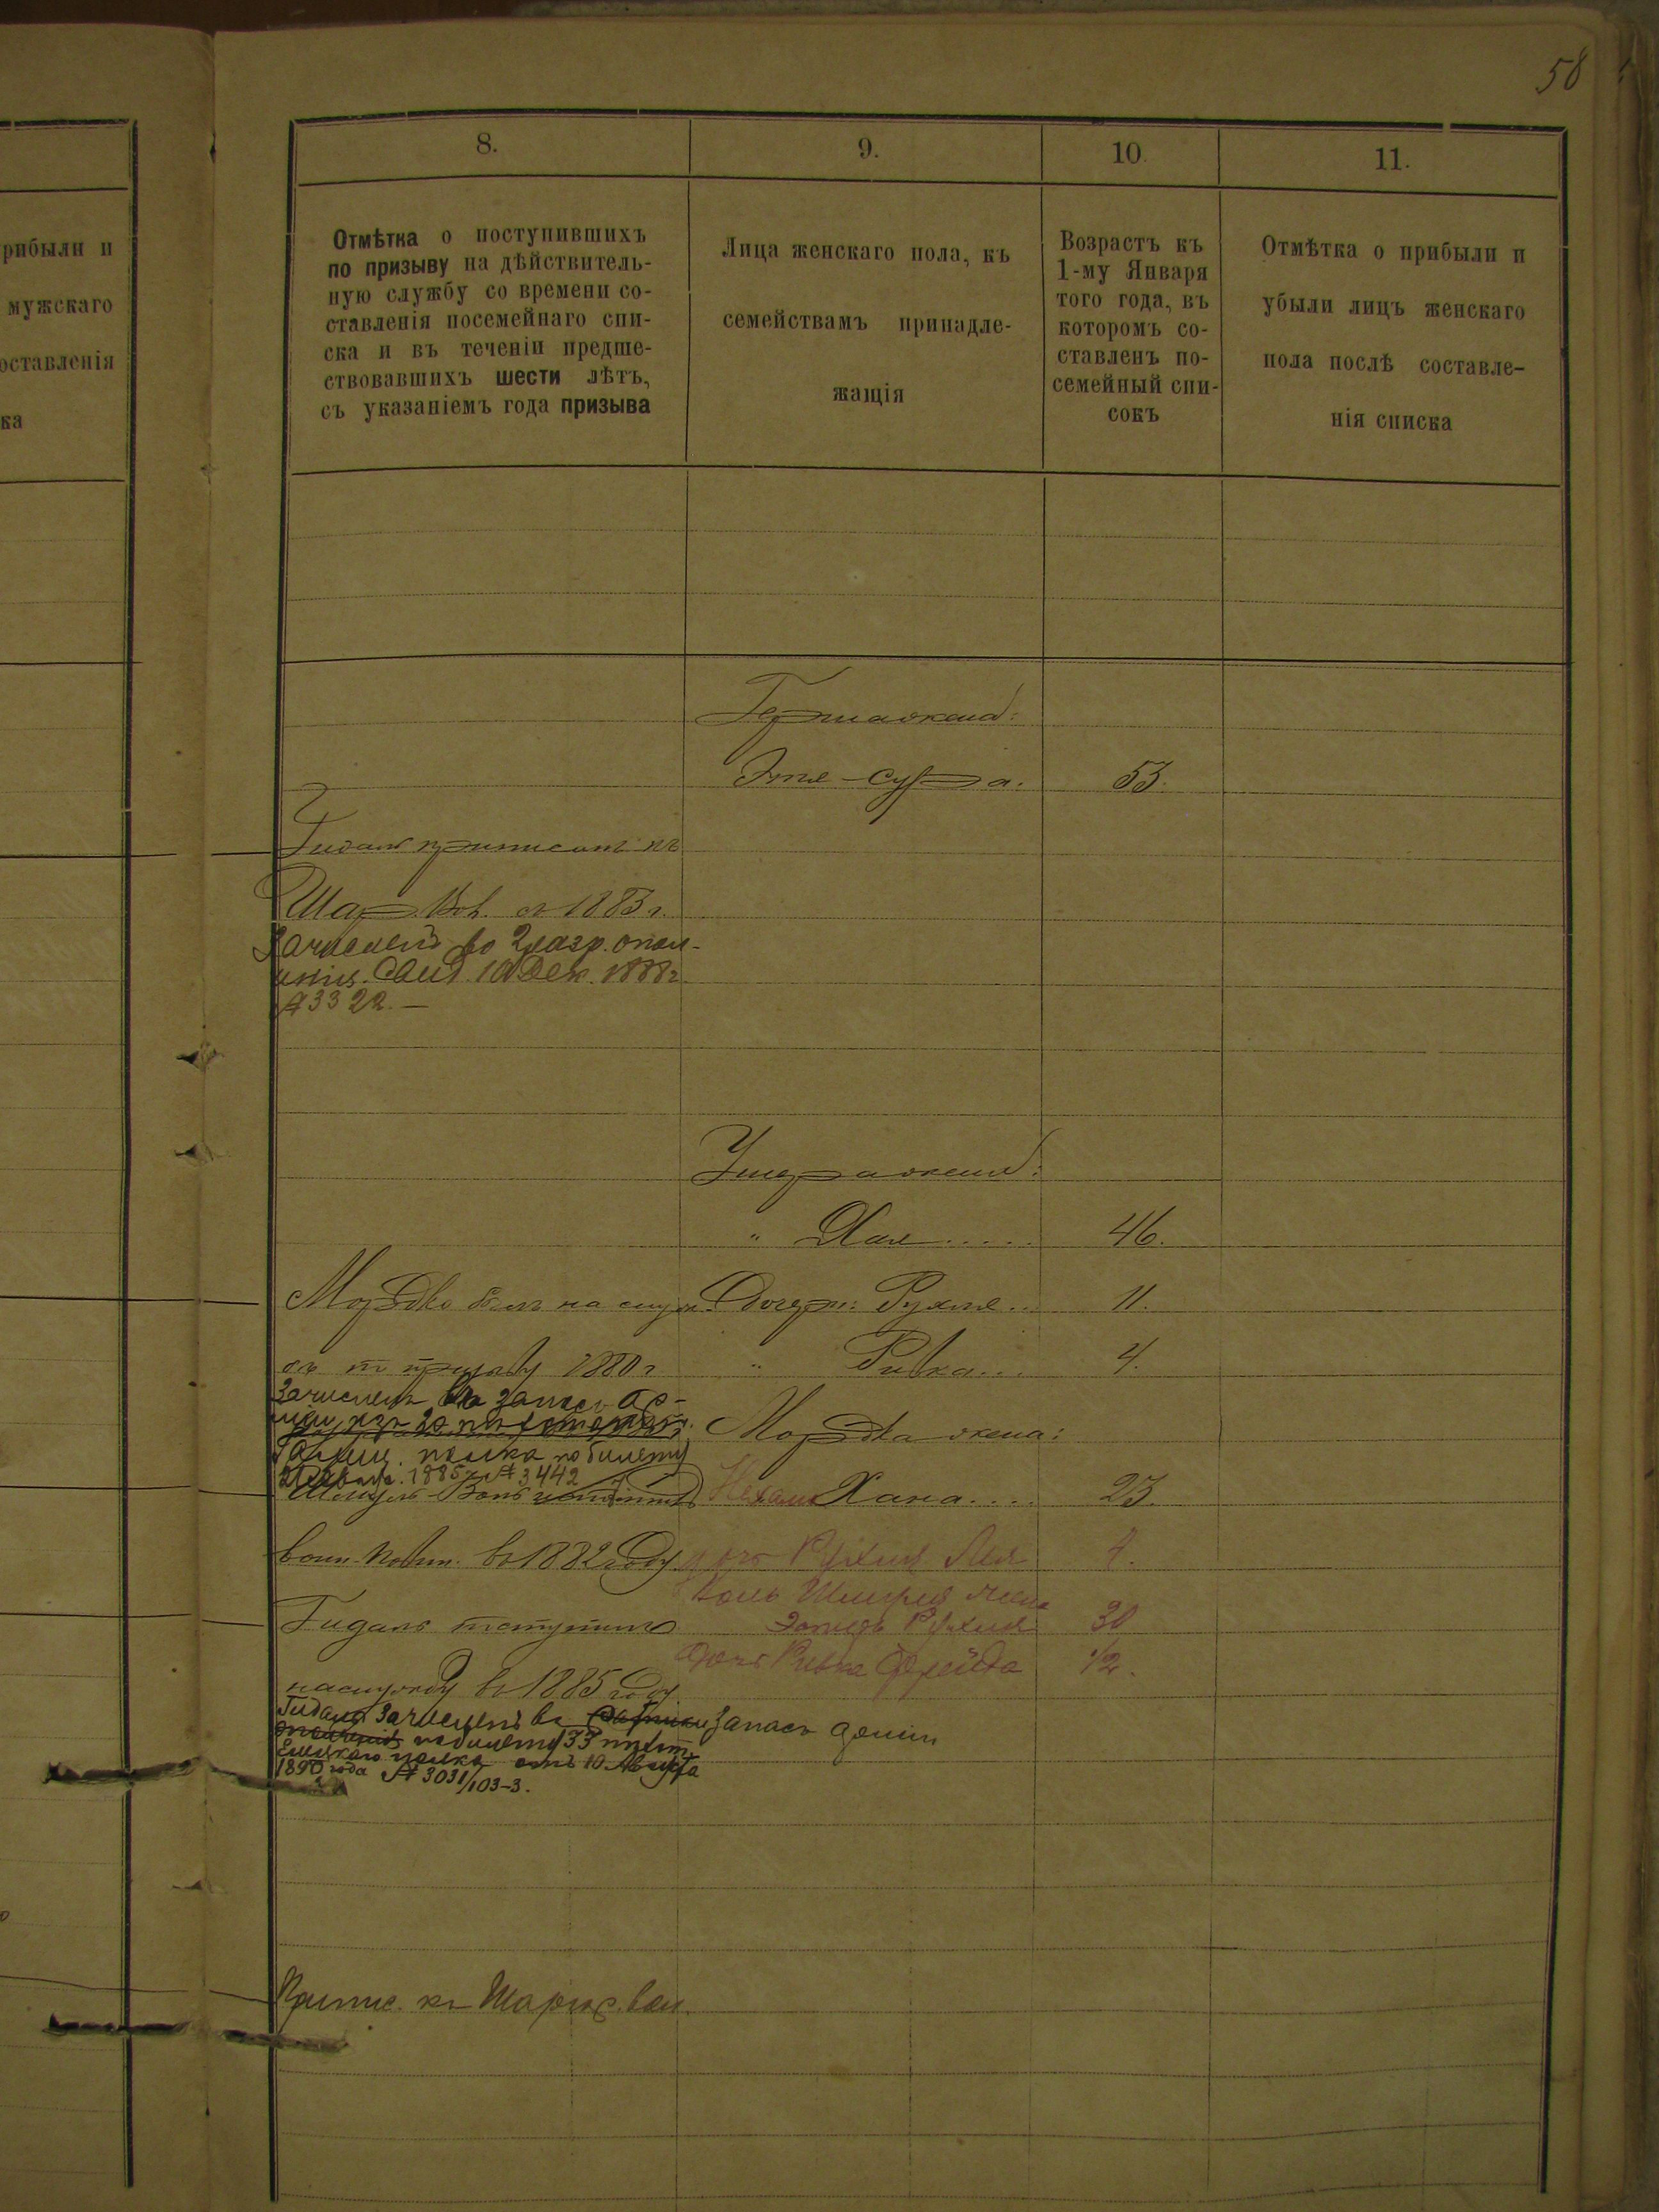 58
рибыли и
мужскаго
оставленія
ка
8.
9.
10.
11.
Отмѣтка о поступившихъ
по призыву на дѣйствитель-
ную службу со времени со-
ставленія посемейнаго спи-
ска и въ теченіи предше-
ствовавшихъ шести лѣтъ,
съ указаніемъ года призыва
Лица женскаго пола, къ
семействамъ принадле-
жащія
Возрастъ къ
1-му Января
того года, въ
которомъ со-
ставленъ по-
семейный спи-
сокъ
Отмѣтка о прибыли и
убыли лицъ женскаго
пола послѣ составле-
нія списка
Герша жена:
Этя-Сура. 53.
Гидаль приписанъ къ
1883 г.
Зачисленъ во 2 разр. опол-
ченія. Свид. 10 Дек. 1888 г.
№ 3322.
жена:
" Хая..... 46.
Мордко былъ на служ.
Дочери: Рухля.. 11.
по призыву 1880 г.
" Ривка... 4.
Зачисленъ въ запасъ ар-
міи
полка по билету
1885 г. № 3442
Мордка жена:
Хана.... 23.
воин. повин. въ 1882 году
дочь Рухля Лея 4.
жена
Рухля 30
Гидаль поступилъ
на службу въ 1885 году.
дочь Ривка Фрейда 1/2.
Гидаль зачисленъ въ запасъ арміи
ополченія по билету 33 пѣхот.
Елецкаго полка отъ 10 Августа
1890 года № 3031/103-3.
Припис. къ